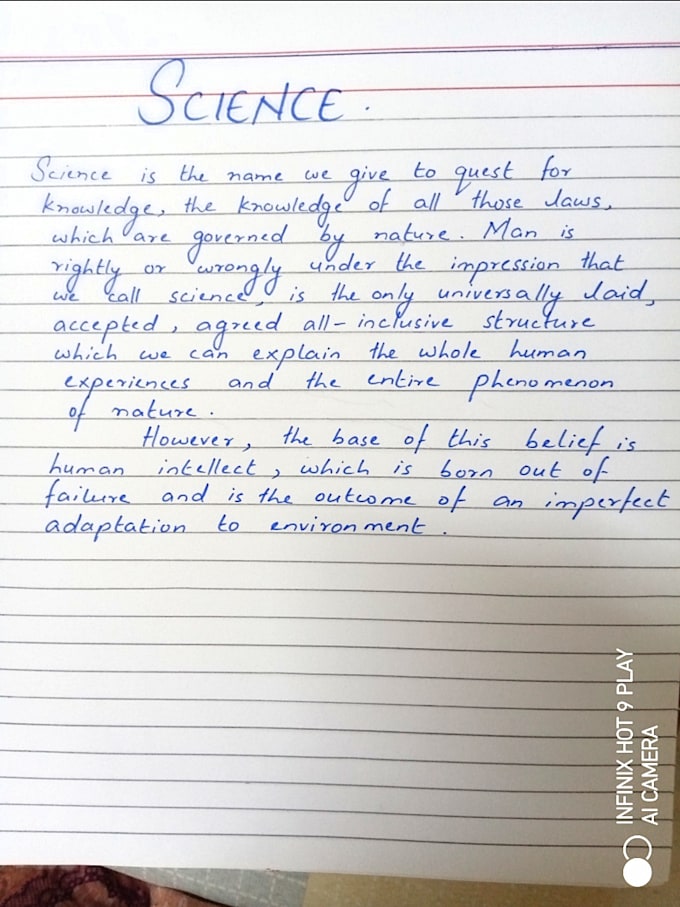 SCIENCE.
Science is the name we give to quest for
knowledge, the knowledge of all those laws,
which are governed by nature. Man is
rightly or wrongly under the impression that
we call science, is the only universally laid,
accepted, agreed all-inclusive structure
which we can explain the whole human
experiences and the entire phenomenon
of nature.
However, the base of this belief is
human intellect, which is born out of
failure and is the outcome of an imperfect
adaptation to environment.
INFINIX HOT 9 PLAY
AI CAMERA